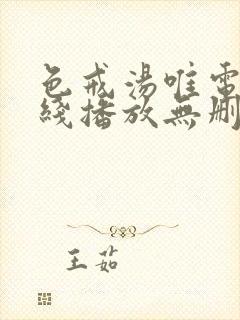 色戒湯唯電
綫播放無刪
王茹